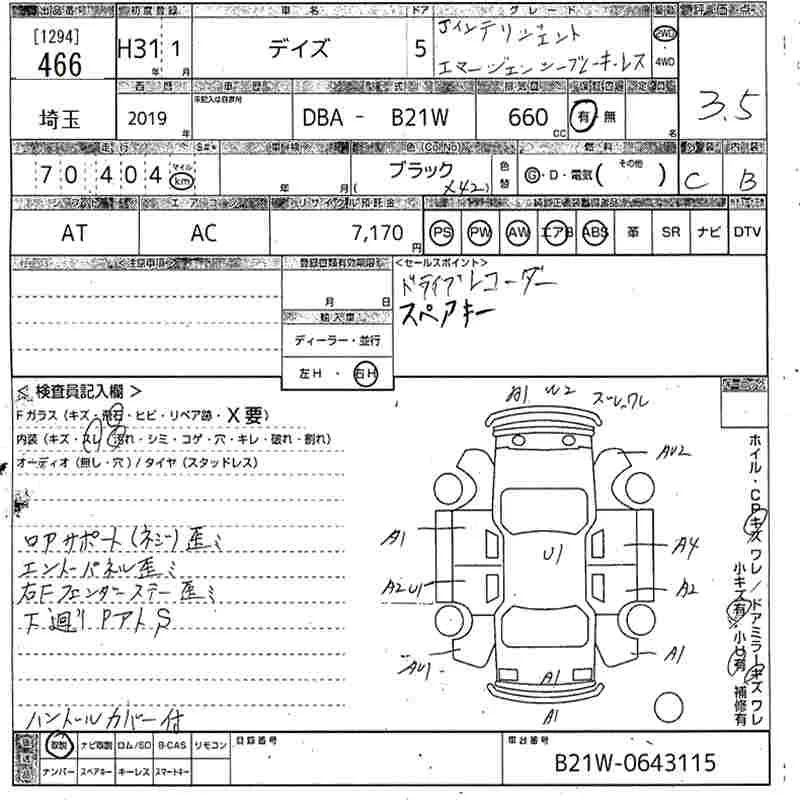 出品番号 初度登録 車名 ドア グレード
[1294]
466
H31 年 1 月
デイズ
5
Jインテリジェント
エマージェンシーブレーキレス
2WD
4WD
評価点
3.5
埼玉
西暦 車歴 型式 排気量
2019 年
DBA - B21W
660 cc
有・無
名
走行 車検 色 (Co.No) 燃料 外装 内装
70,404
マイル
km
年 月
ブラック
( X42 )
色替
G・D・電気( その他 )
C B
シフト エアコン リサイクル預託金
AT
AC
7,170 円
PS PW AW エアB ABS 革 SR ナビ DTV
<注意事項>
登録書類有効期限
月 日
輸入車
ディーラー・並行
左H ・ 右H
<セールスポイント>
ドライブレコーダー
スペアキー
< 検査員記入欄 >
Fガラス (キズ・飛石・ヒビ・リペア跡・X要)
内装 (キズ・スレ・汚れ・シミ・コゲ・穴・キレ・破れ・割れ)
オーディオ (無し・穴) / タイヤ (スタッドレス)
ロアサポート(ネジ)歪ミ
エンドパネル歪ミ
右Fフェンダーステー歪ミ
下廻りPアトS
ハンドルカバー付
A1 W2
AU2
A1
U1
A4
A2 U1
A2
AU1
A1
A1
A1
ホイル・CPキズ ワレ / ドアミラーキズ ワレ
小キズ有 小U有 補修有
取説 ナビ取説 ロム/SD B-CAS リモコン
ナンバー スペアキー キーレス スマートキー
登録番号
車台番号
B21W-0643115